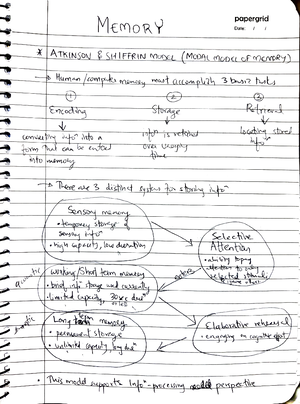 MEMORY
papergrid
Date: / /
* ATKINSON & SHIFFRIN MODEL (MODAL MODEL OF MEMORY)
→ Human/computer memory must accomplish 3 basic tasks
① ② ③
Encoding Storage Retrieval
converting infoⁿ into a infoⁿ is retained locating stored
form that can be entered over varying infoⁿ
into memory time
→ There are 3 distinct systems for storing infoⁿ
Sensory memory
• temporary storage of
sensory infoⁿ
• high capacity, low duration
Selective
Attention
ability to pay
attention to only
selected stimuli
Working/Short term memory
• brief infoⁿ storage used currently
• limited capacity, 30 sec
Long term memory
• permanent storage
• unlimited capacity, long
Elaborative rehearsal
• engaging in cognitive effort
• This model supports Infoⁿ-processing perspective